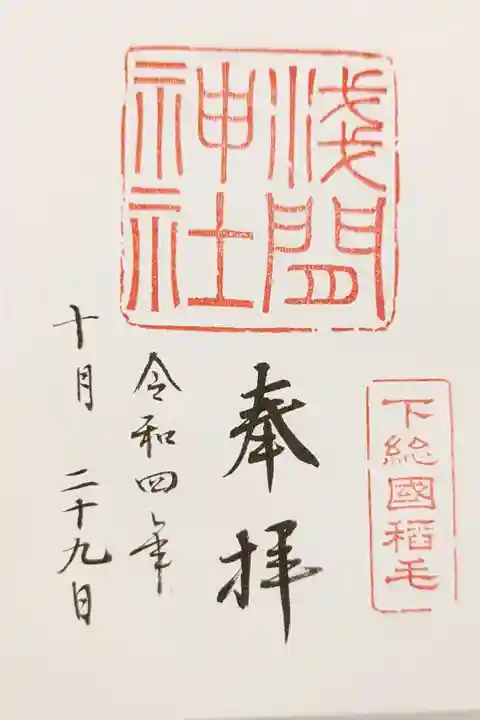 浅間
神社
下総國稲毛
奉拝
令和四年
十月二十九日